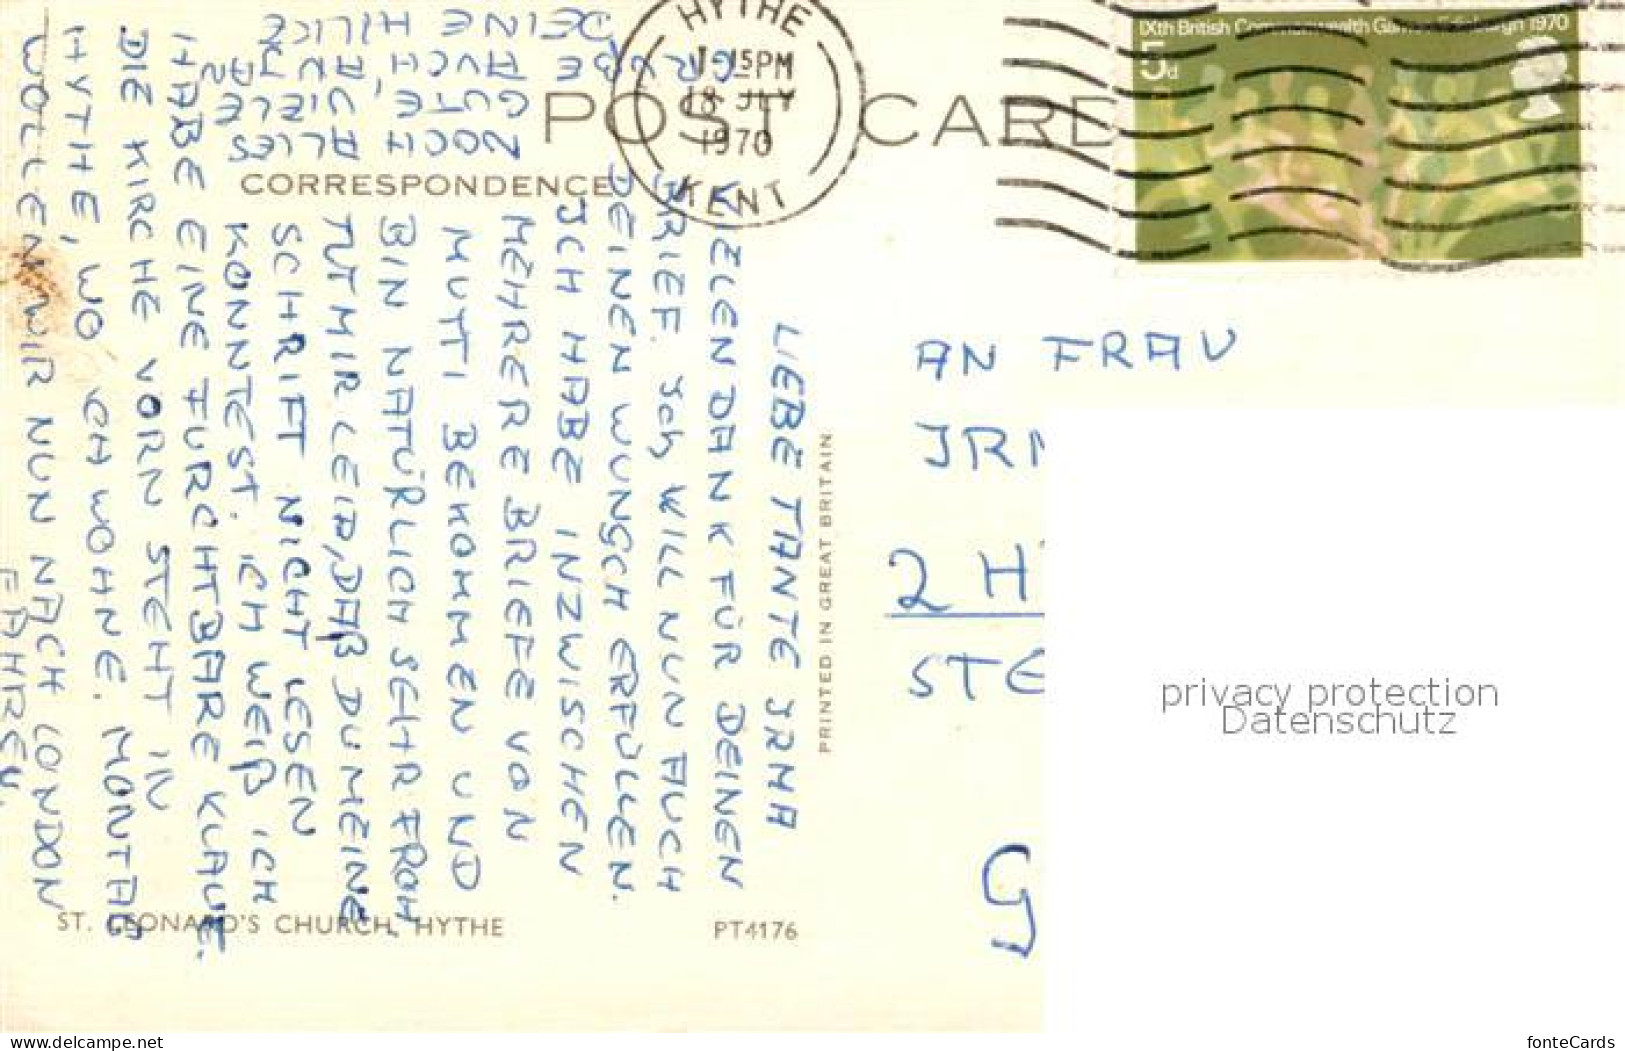 POST CARD
CORRESPONDENCE
HYTHE
1.15PM
18 JLY
1970
KENT
IXth British Commonwealth Games Edinburgh 1970
5d
LIEBE TANTE IRMA
VIELEN DANK FÜR DEINEN
BRIEF. Ich WILL NUN AUCH
DEINEN WUNSCH ERFÜLLEN.
ICH HABE INZWISCHEN
MEHRERE BRIEFE VON
MUTTI BEKOMMEN UND
BIN NATÜRLICH SEHR FROH.
TUT MIR LEID, DAß DU MEINE
SCHRIFT NICHT LESEN
KONNTEST. ICH WEIß ICH
HABE EINE FURCHTBARE KLAUE.
DIE KIRCHE VORN STEHT IN
HYTHE, WO ICH WOHNE. MONTAG
WOLLEN WIR NUN NACH LONDON
FAHREN.
NOCH
ALLES
GUTE, AUCH
VIELE
DEINE
AN FRAU
2 H
STE
G
PRINTED IN GREAT BRITAIN
ST. LEONARD'S CHURCH, HYTHE
PT4176
privacy protection
Datenschutz
www.delcampe.net
fonteCards